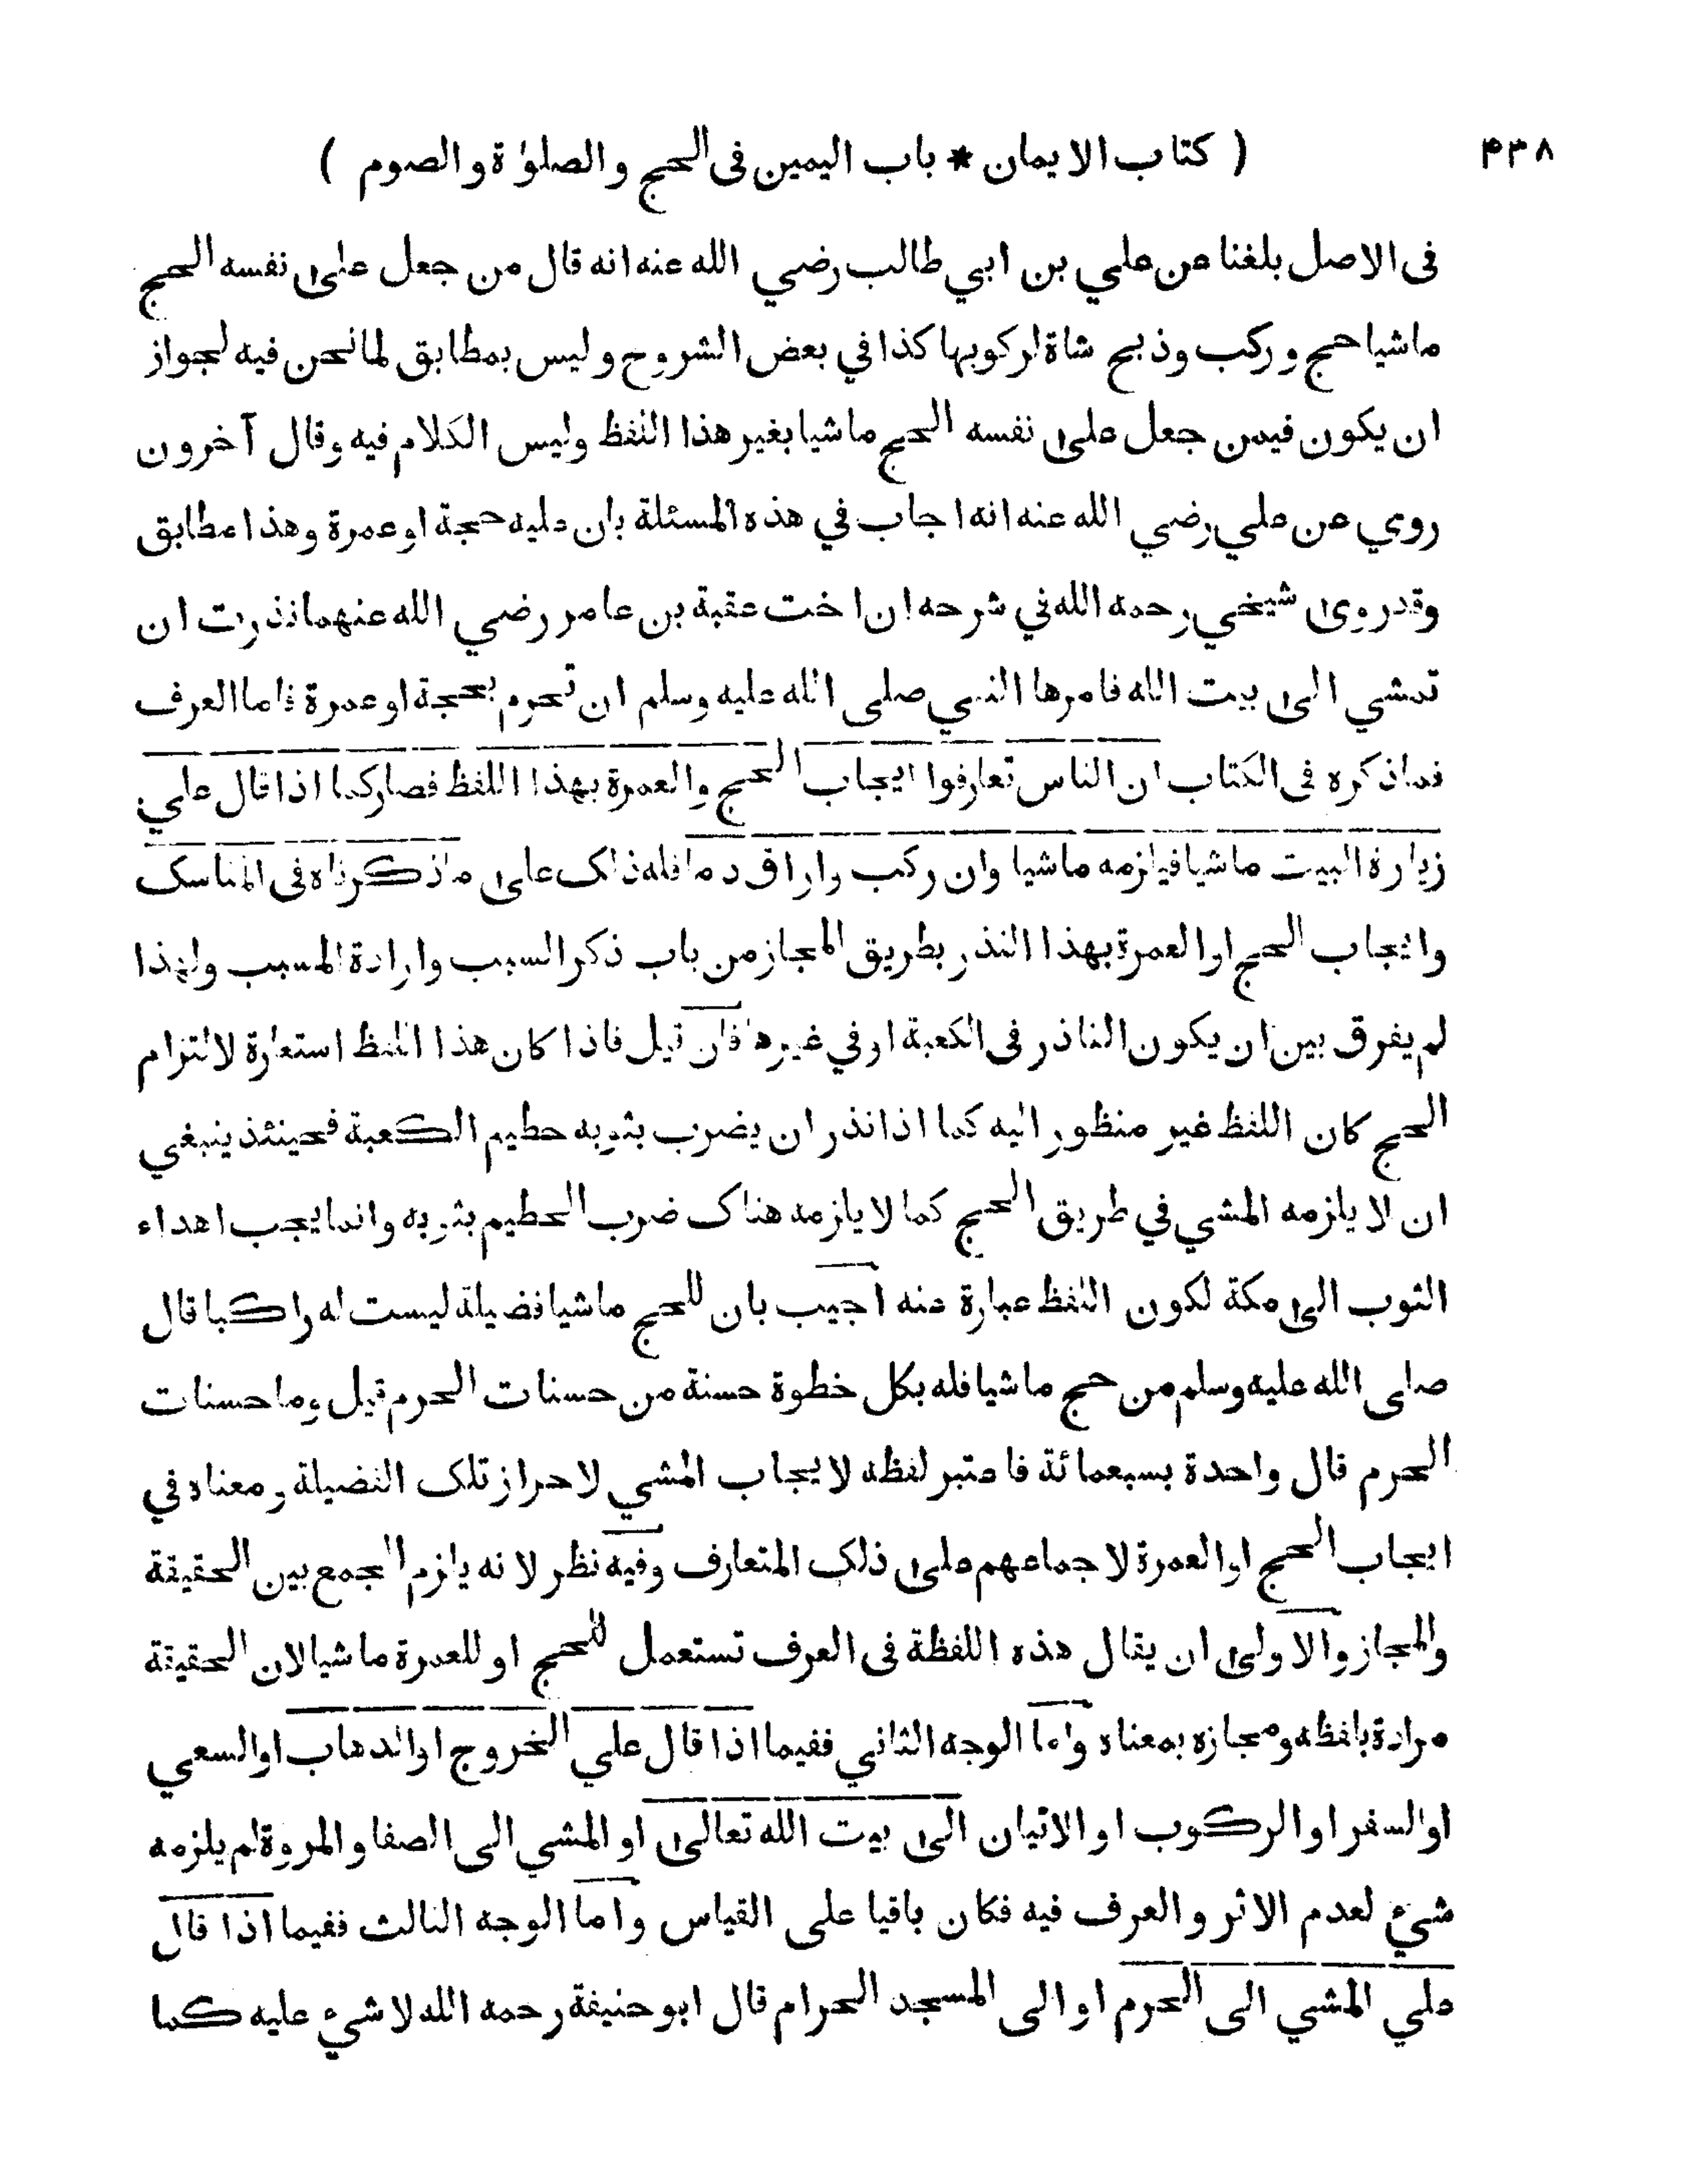 ۴۳۸ ( كتاب الايمان * باب اليمين فى الحج والصلوٰة والصوم )
فى الاصل بلغنا عن علي بن ابي طالب رضي الله عنه انه قال من جعل على نفسه الحج
ماشيا حج وركب وذبح شاة لركوبها كذا في بعض الشروح وليس بمطابق لما نحن فيه لجواز
ان يكون فيمن جعل على نفسه الحج ماشيا بغير هذا اللفظ وليس الكلام فيه وقال آخرون
روي عن علي رضي الله عنه انه اجاب في هذه المسئلة بان عليه حجة او عمرة وهذا مطابق
وقد روى شيخي رحمه الله في شرحه ان اخت عقبة بن عامر رضي الله عنهما نذرت ان
تمشي الى بيت الله فامرها النبي صلى الله عليه وسلم ان تحرم بحجة او عمرة فاما العرف
فما ذكره فى الكتاب ان الناس تعارفوا ايجاب الحج والعمرة بهذا اللفظ فصار كما اذا قال علي
زيارة البيت ماشيا فيلزمه ماشيا وان ركب واراق دما فله ذلك على ما ذكرناه فى المناسك
وايجاب الحج او العمرة بهذا النذر بطريق المجاز من باب ذكر السبب وارادة المسبب ولهذا
لم يفرق بين ان يكون الناذر فى الكعبة او في غيرها فان قيل فاذا كان هذا اللفظ استعارة لالتزام
الحج كان اللفظ غير منظور اليه كما اذا نذر ان يضرب بثوبه حطيم الكعبة فحينئذ ينبغي
ان لا يلزمه المشي في طريق الحج كما لا يلزمه هناك ضرب الحطيم بثوبه وانما يجب اهداء
الثوب الى مكة لكون اللفظ عبارة عنه اجيب بان للحج ماشيا فضيلة ليست له راكبا قال
صلى الله عليه وسلم من حج ماشيا فله بكل خطوة حسنة من حسنات الحرم قيل وما حسنات
الحرم قال واحدة بسبعمائة فاعتبر لفظه لايجاب المشي لاحراز تلك الفضيلة ومعناه في
ايجاب الحج او العمرة لاجماعهم على ذلك المتعارف وفيه نظر لانه يلزم الجمع بين الحقيقة
والمجاز والاولى ان يقال هذه اللفظة فى العرف تستعمل للحج او للعمرة ماشيا لان الحقيقة
مرادة بلفظه ومجازه بمعناه واما الوجه الثاني ففيما اذا قال علي الخروج او الذهاب او السعي
او السفر او الركوب او الاتيان الى بيت الله تعالى او المشي الى الصفا والمروة لم يلزمه
شيء لعدم الاثر والعرف فيه فكان باقيا على القياس واما الوجه الثالث ففيما اذا قال
علي المشي الى الحرم او الى المسجد الحرام قال ابو حنيفة رحمه الله لا شيء عليه كما